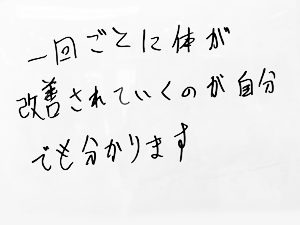 一回ごとに体が
改善されていくのが自分
でも分かります